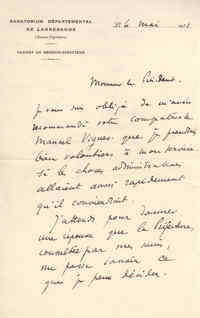 SANATORIUM DÉPARTEMENTAL
DE LANNEMEZAN
(Hautes-Pyrénées)
CABINET DU MÉDECIN-DIRECTEUR
le mai
Monsieur le Président,
Je vous suis obligé de m'avoir
recommandé votre compatriote
Manuel Vignes que je prendrai
bien volontiers à mon service
si les choses administratives
allaient aussi rapidement
qu'il conviendrait.
J'attends pour donner
une réponse que la Préfecture,
consultée par mes soins,
me fasse savoir ce
que je peux décider.